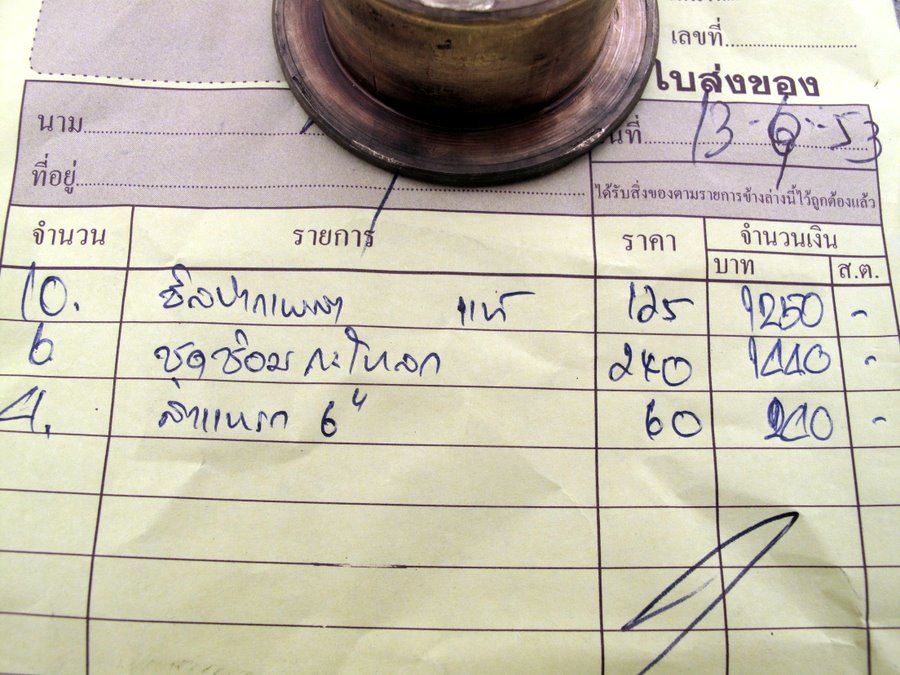 เลขที่
ใบส่งของ
นาม
วันที่ 13-6-53
ที่อยู่
ได้รับสิ่งของตามรายการข้างล่างนี้ไว้ถูกต้องแล้ว
จำนวน รายการ ราคา จำนวนเงิน
บาท ส.ต.
10. ซีลปากเพลา แท้ 125 1250 -
6 ชุดซ่อม กะโหลก 240 1440 -
4. ผ้าเบรก 6" 60 240 -